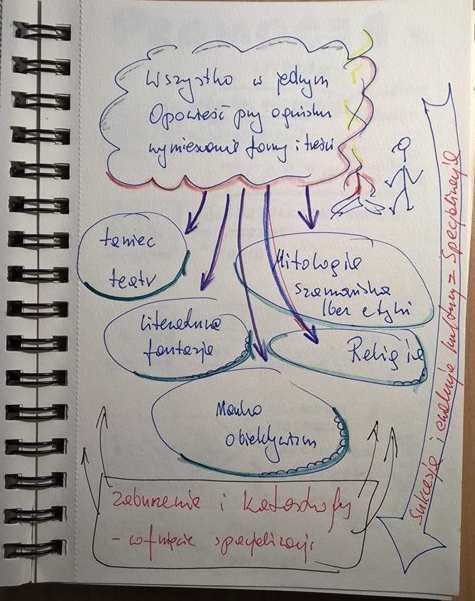 Wszystko w jednym
Opowieść przy ognisku
wymieszanie formy i treści
taniec
teatr
Mitologia
szamańska
(bez etyki
Literatura
fantazja
Religia
Nauka
obiektywizm
Zaburzenie i Katastrofy
- cofnięcie specjalizacji
Sukcesja i ewolucja kultury = Specjalizacja